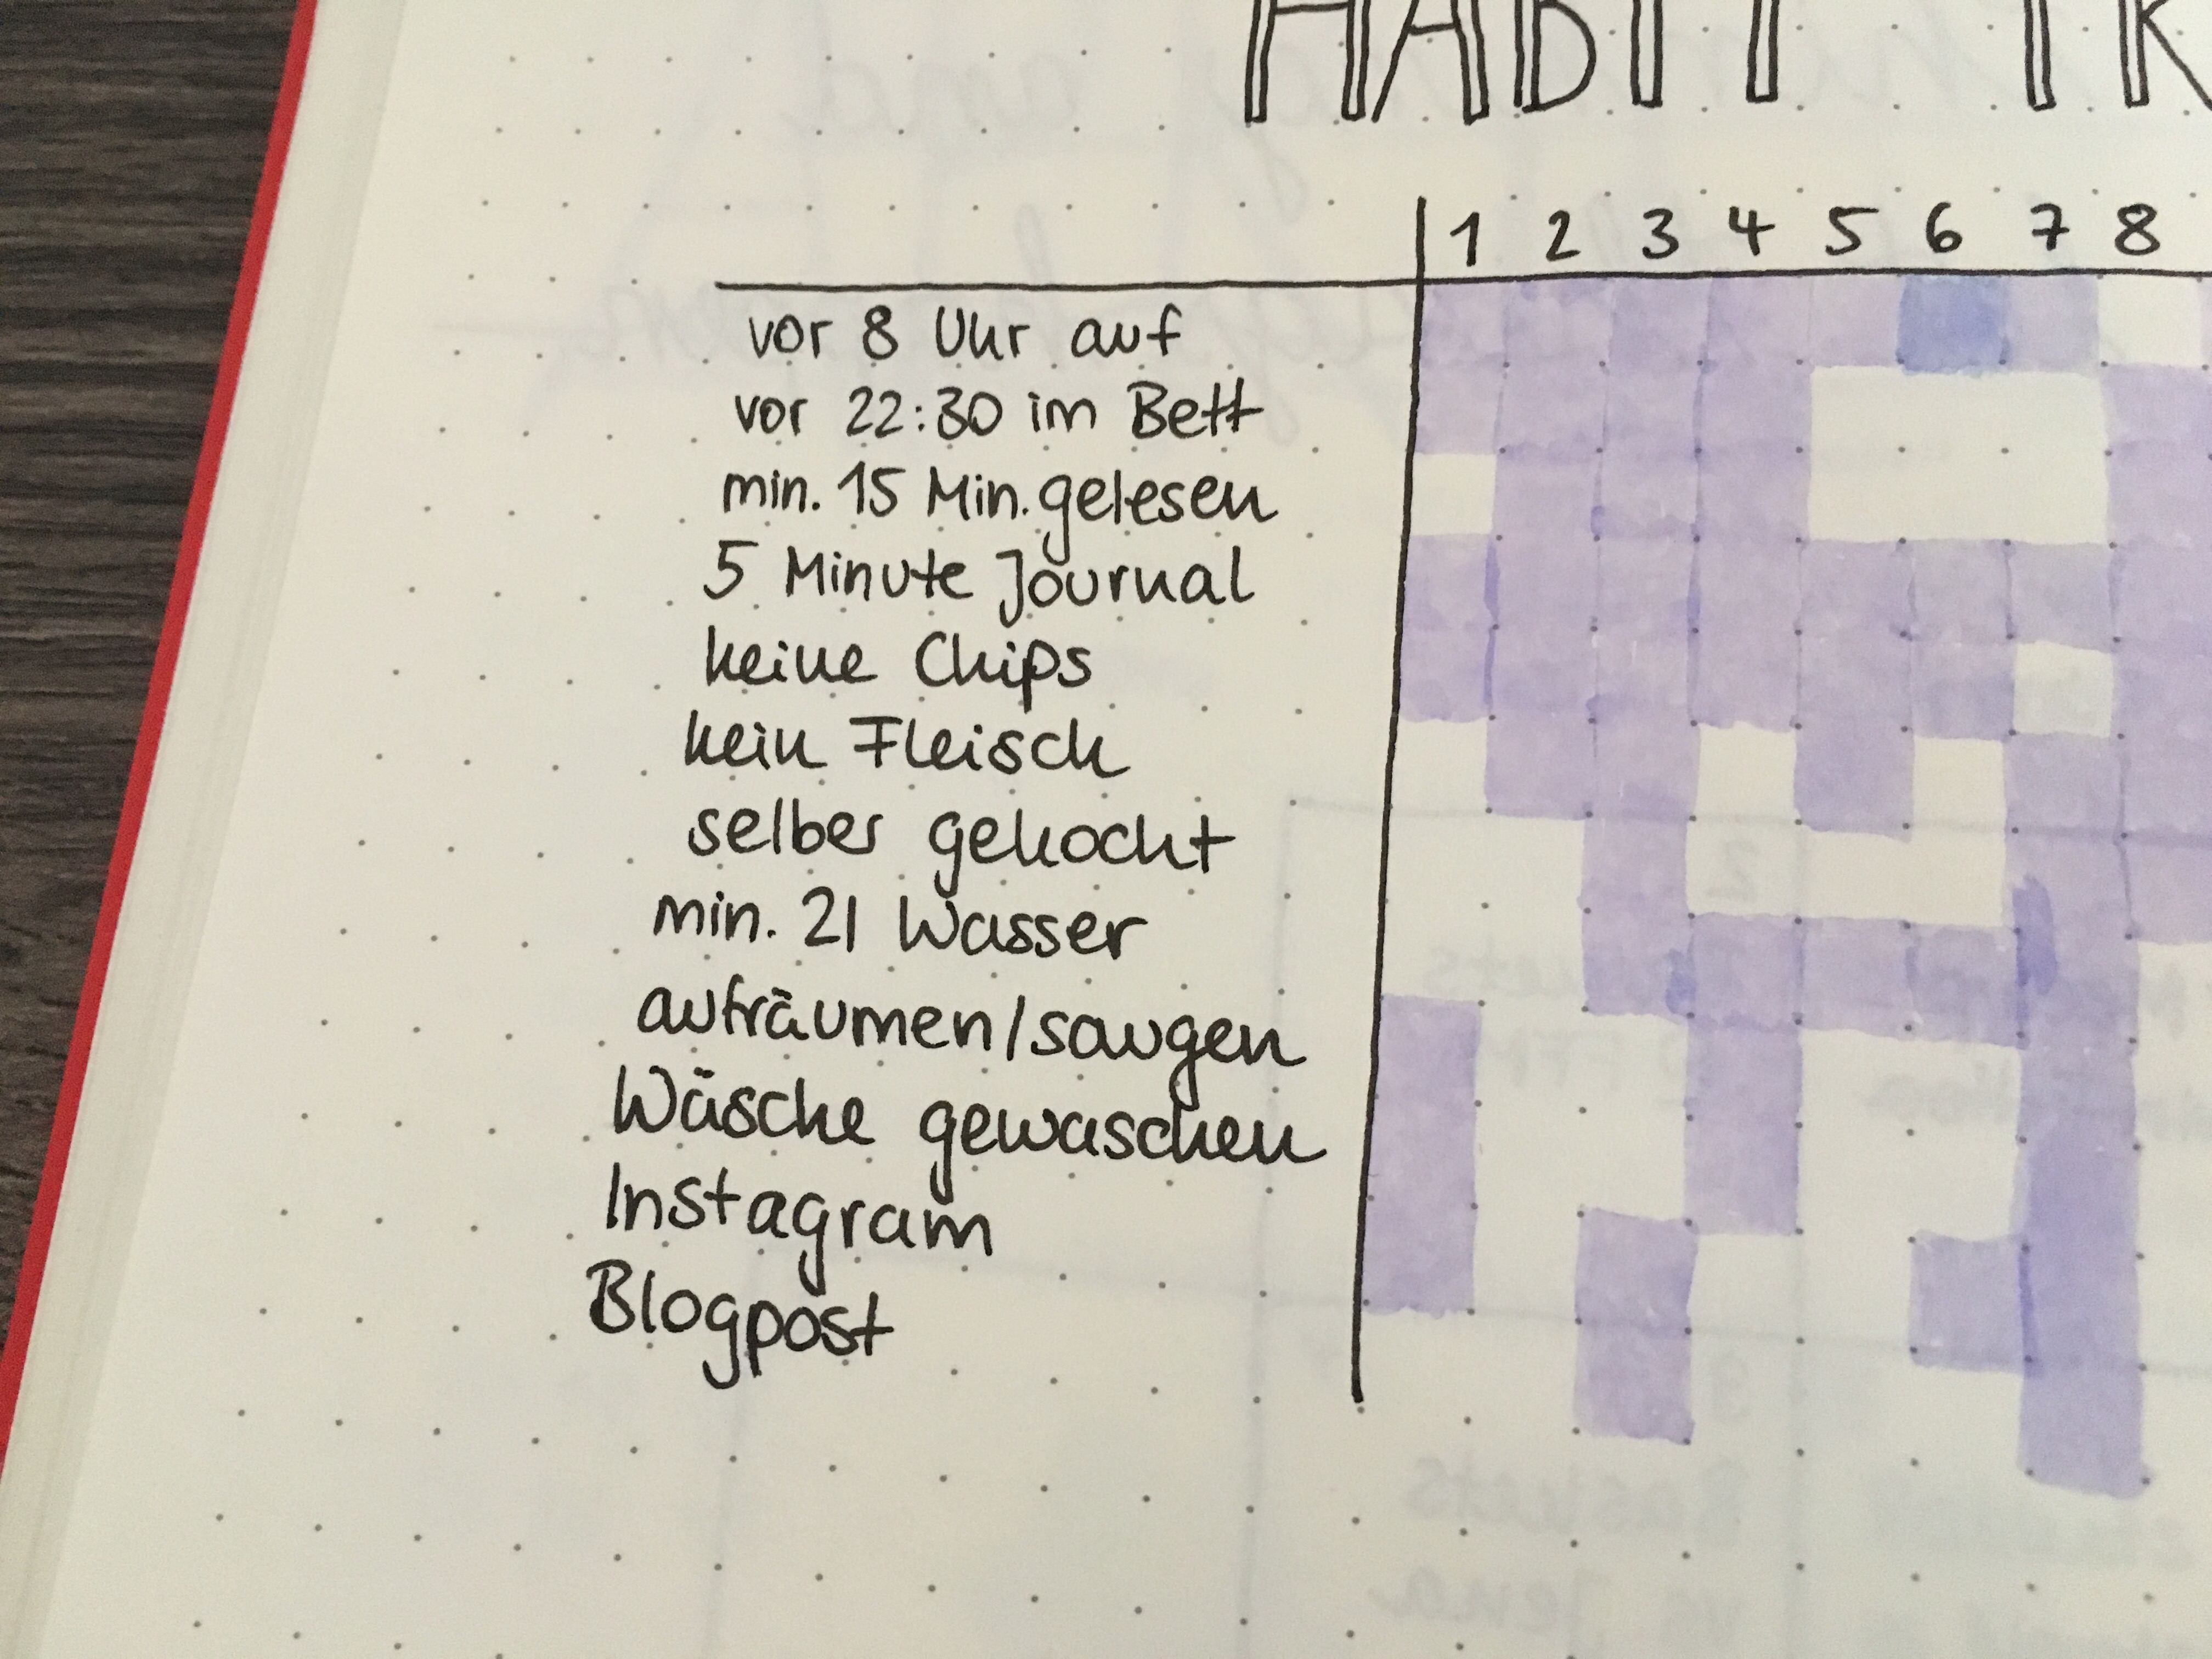 HABIT TR
1 2 3 4 5 6 7 8
vor 8 Uhr auf
vor 22:30 im Bett
min. 15 Min. gelesen
5 Minute Journal
keine Chips
kein Fleisch
selber gekocht
min. 2l Wasser
aufräumen/saugen
Wäsche gewaschen
Instagram
Blogpost